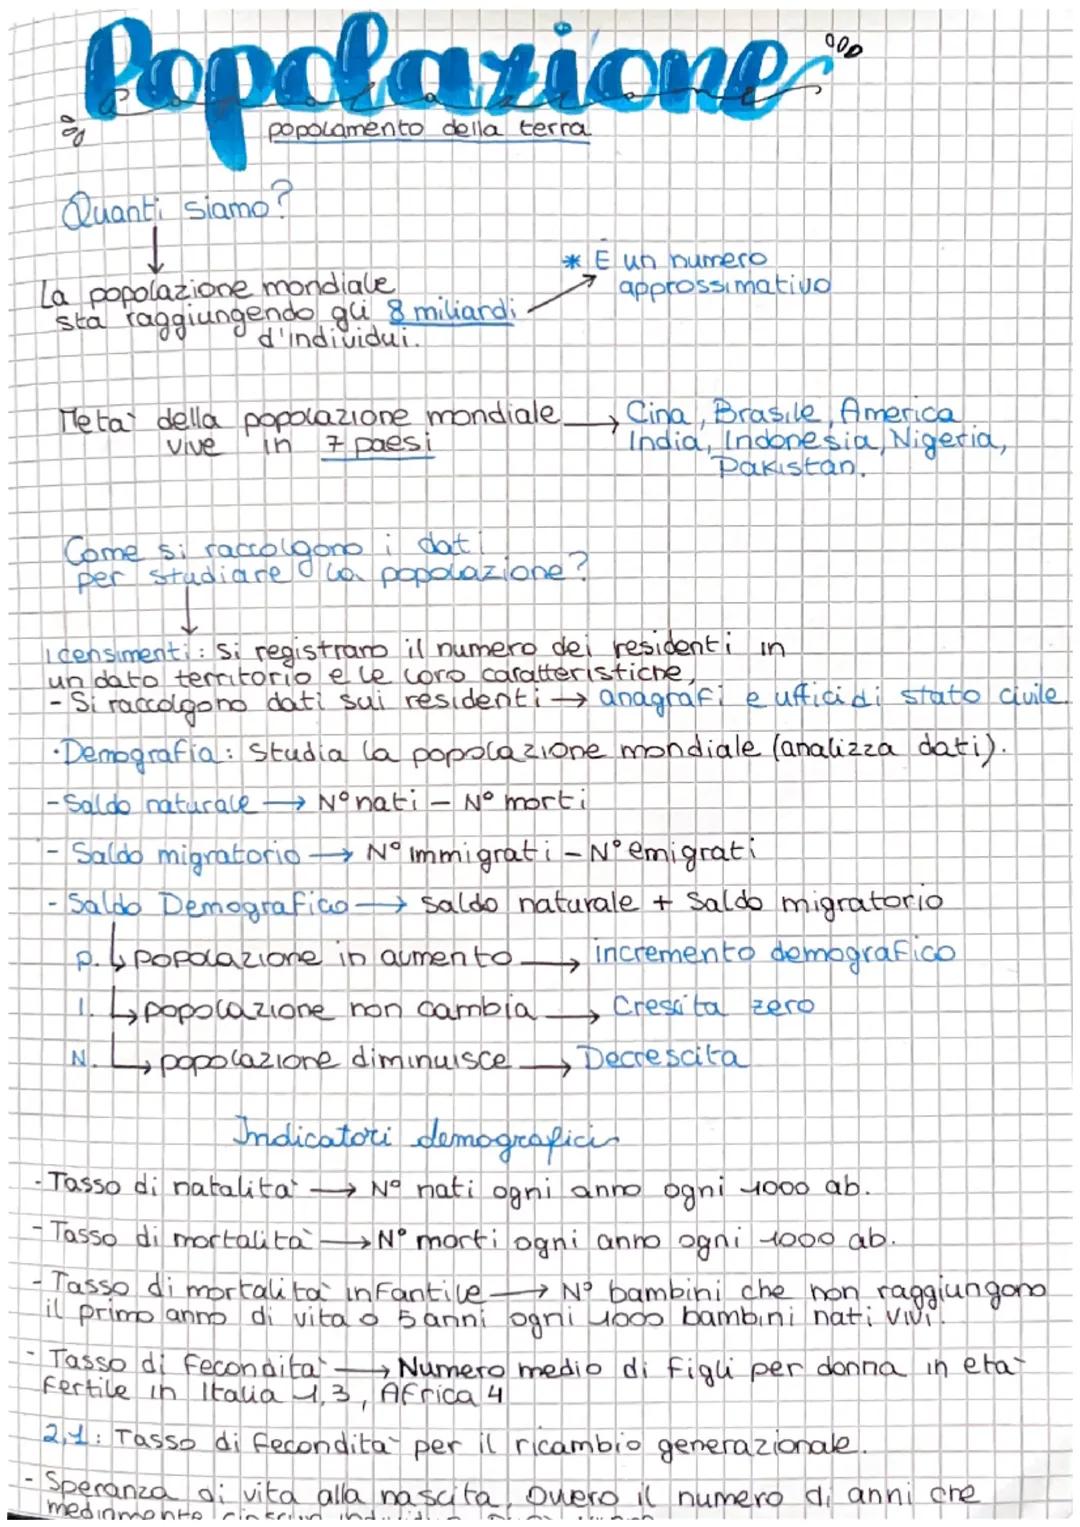 Popolazione
popolamento della terra
Quanti siamo?
La popolazione mondiale
sta raggiungendo gli 8 miliardi
d'individui.
* È un numero
approssimativo
Metà della popolazione mondiale → Cina, Brasile, America
vive in 7 paesi India, Indonesia, Nigeria,
Pakistan.
Come si raccolgono i dati
per studiare la popolazione?
I censimenti: si registrano il numero dei residenti in
un dato territorio e le loro caratteristiche,
- Si raccolgono dati sui residenti → anagrafi e uffici di stato civile.
·Demografia: studia la popolazione mondiale (analizza dati).
- Saldo naturale → N° nati - N° morti
- Saldo migratorio → N° immigrati - N° emigrati
- Saldo Demografico → saldo naturale + Saldo migratorio
P. ↳ popolazione in aumento → incremento demografico
I. ↳ popolazione non cambia → Crescita zero
N. ↳ popolazione diminuisce → Decrescita
Indicatori demografici
- Tasso di natalità → N° nati ogni anno ogni 1000 ab.
- Tasso di mortalità → N° morti ogni anno ogni 1000 ab.
- Tasso di mortalità infantile → N° bambini che non raggiungono
il primo anno di vita o 5 anni ogni 1000 bambini nati vivi.
- Tasso di fecondità → Numero medio di figli per donna in età
fertile in Italia 1,3, Africa 4
2,1: Tasso di fecondità per il ricambio generazionale.
- Speranza di vita alla nascita, ovvero il numero di anni che
mediamente ciascun individuo